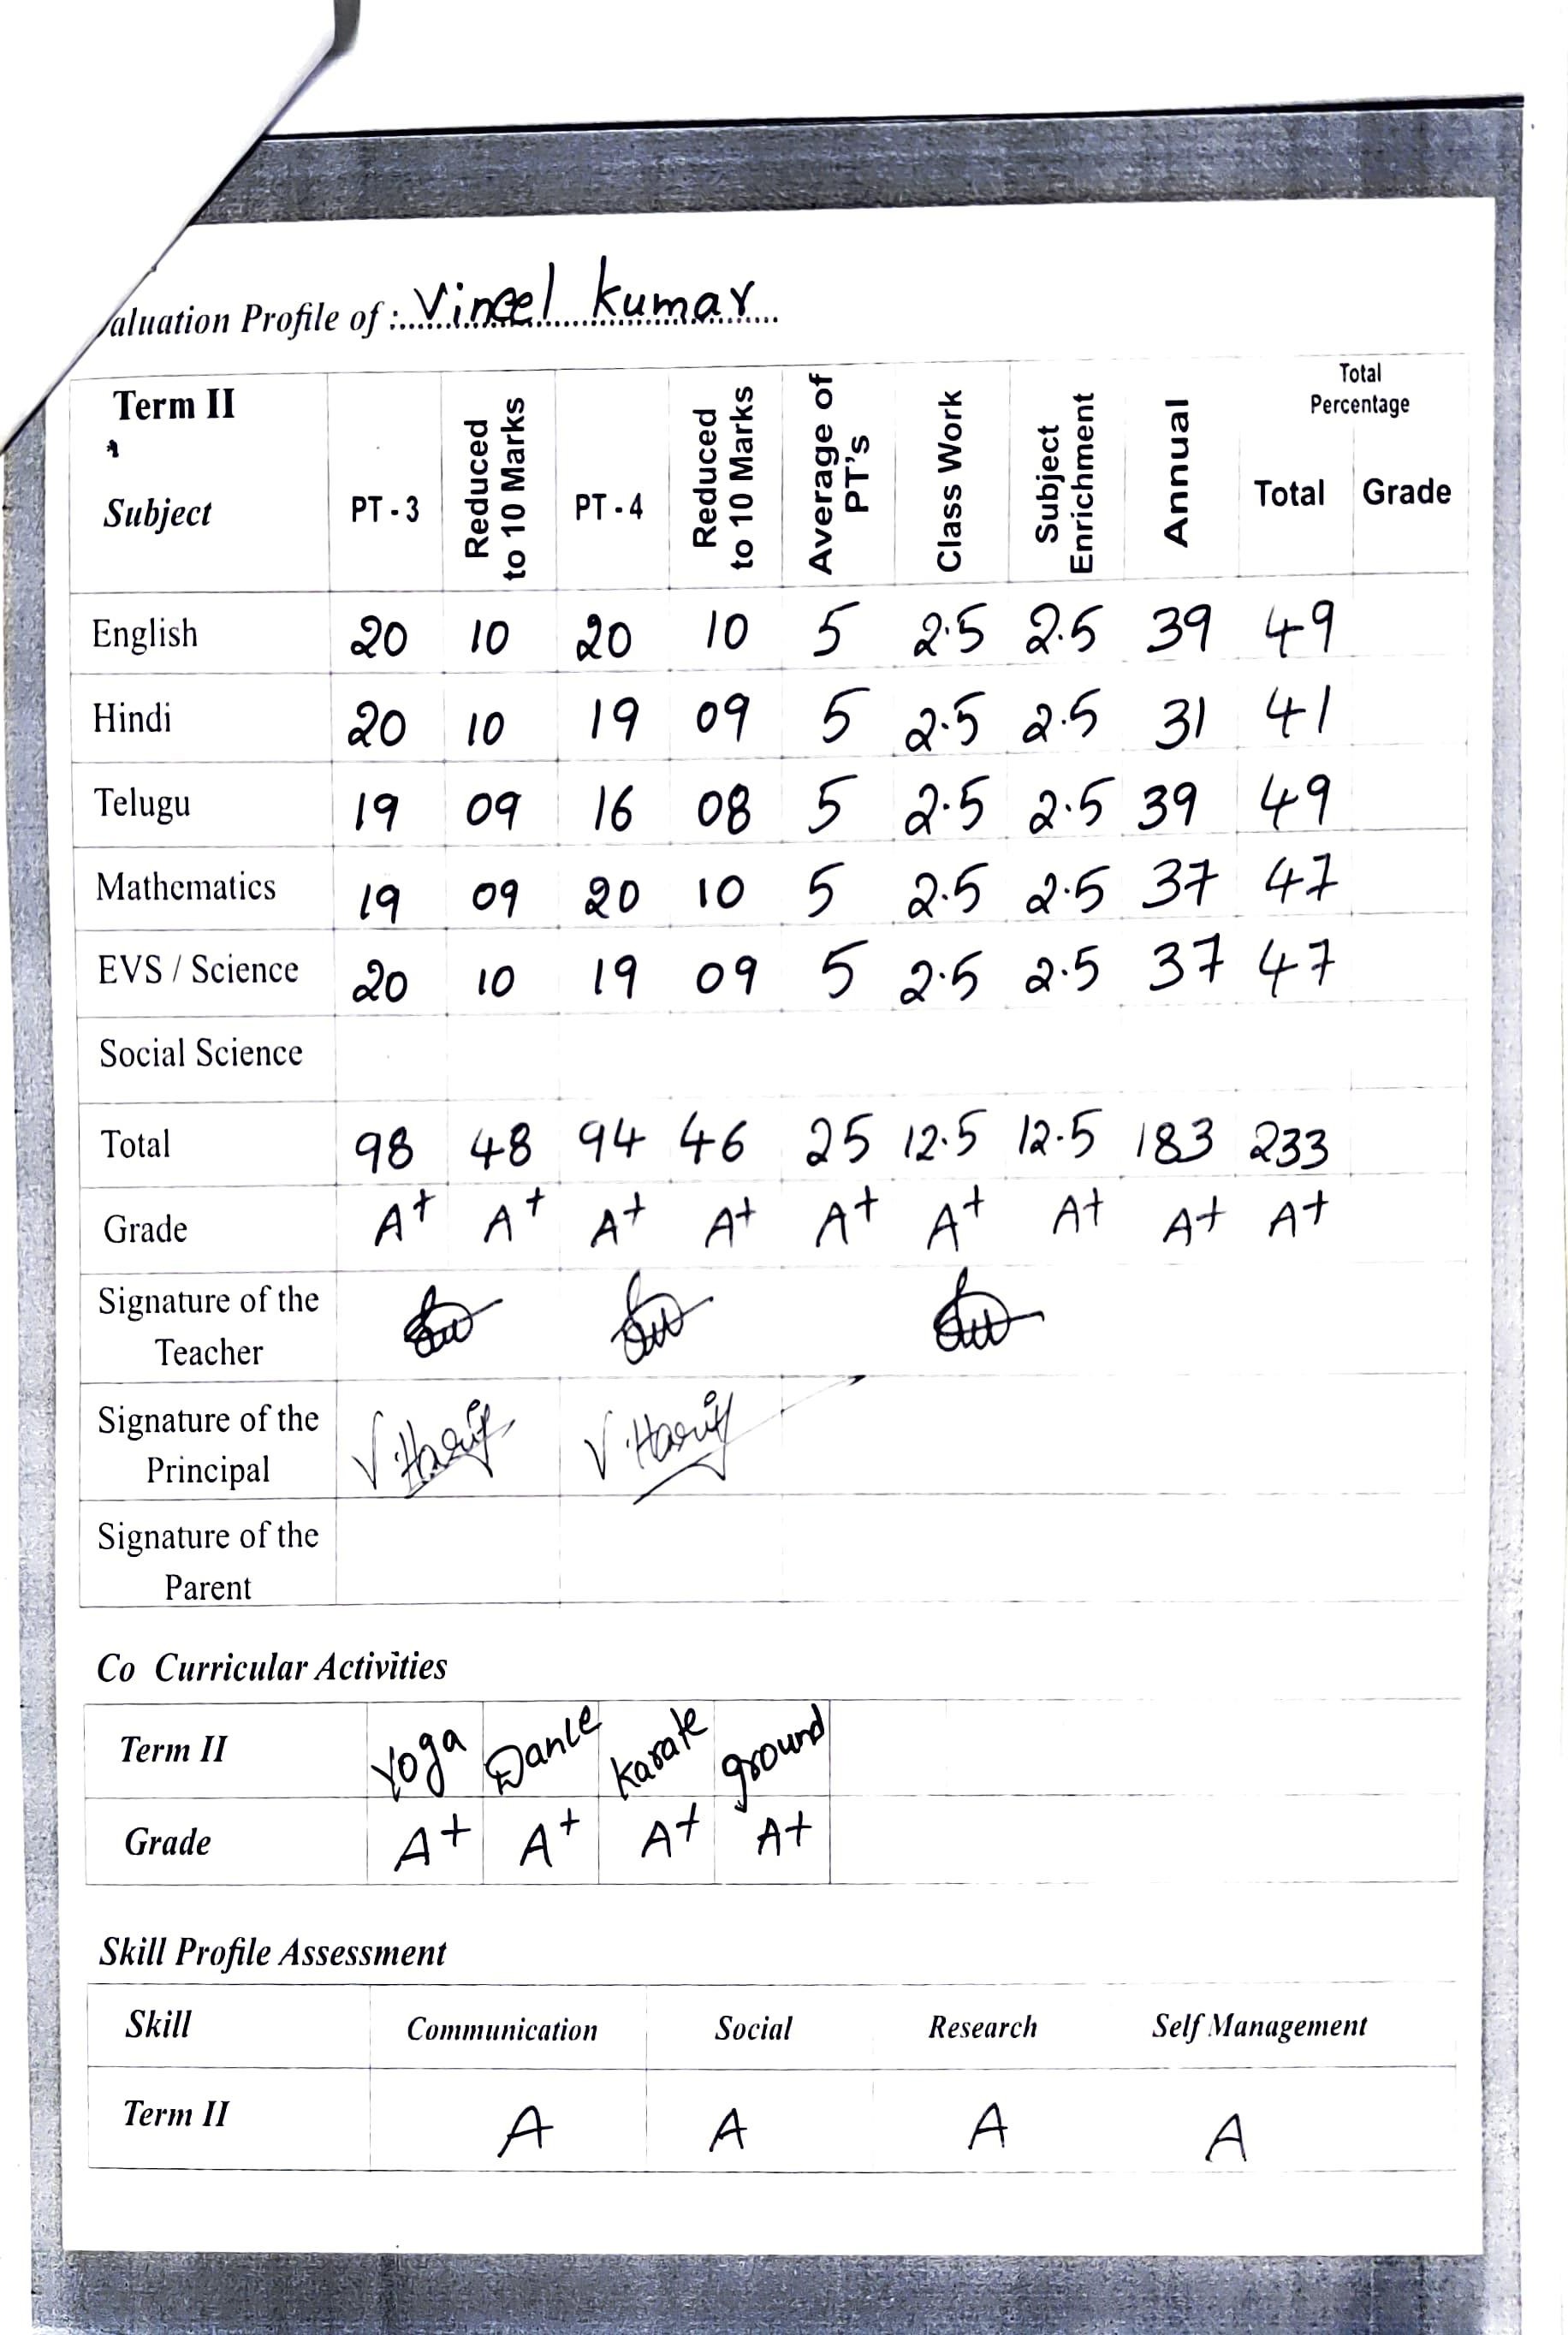 aluation Profile of : Vineel kumar
Term II
Subject
PT - 3
Reduced to 10 Marks
PT - 4
Reduced to 10 Marks
Average of PT's
Class Work
Subject Enrichment
Annual
Total Percentage
Total Grade
English 20 10 20 10 5 2.5 2.5 39 49
Hindi 20 10 19 09 5 2.5 2.5 31 41
Telugu 19 09 16 08 5 2.5 2.5 39 49
Mathematics 19 09 20 10 5 2.5 2.5 37 47
EVS / Science 20 10 19 09 5 2.5 2.5 37 47
Social Science
Total 98 48 94 46 25 12.5 12.5 183 233
Grade A+ A+ A+ A+ A+ A+ A+ A+ A+
Signature of the
Teacher
Signature of the
Principal
Signature of the
Parent
Co Curricular Activities
Term II Yoga Dance karate ground
Grade A+ A+ A+ A+
Skill Profile Assessment
Skill Communication Social Research Self Management
Term II A A A A